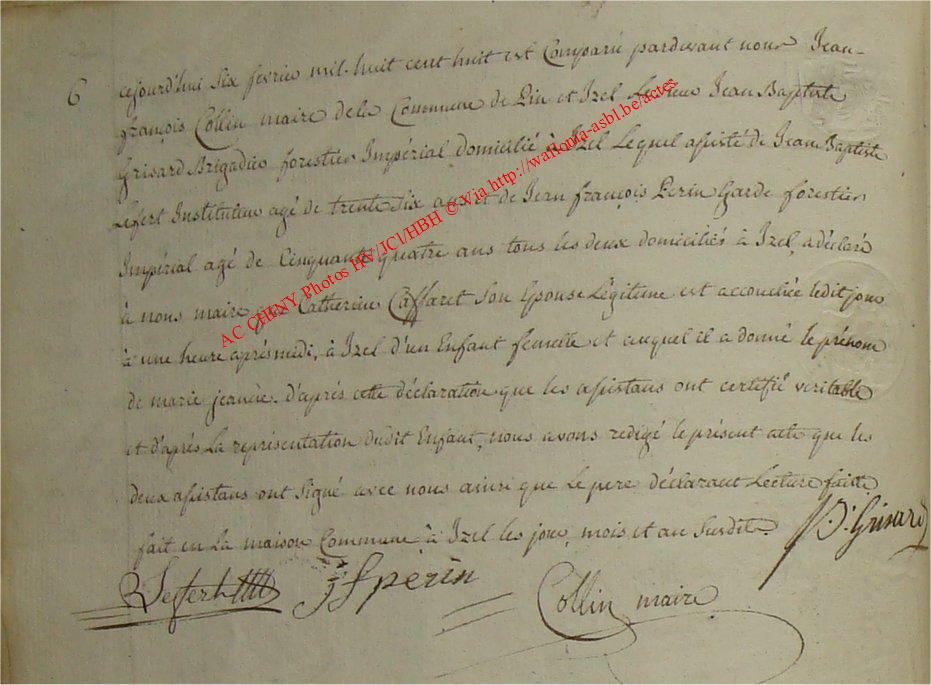 6 cejourd'hui Six fevrier mil-huit cent huit est Comparu pardevant nous Jean-
françois Collin maire dela Commune de Pin et Izel Le sieur Jean Baptiste
Grisard Brigadier forestier Impérial domicilié à Izel Lequel assisté de Jean Baptiste
Lefert Instituteur agé de trente Six ans et de Jean françois Perin Garde forestier
Impérial agé de Cinquante quatre ans tous les deux domiciliés à Izel, a déclaré
à nous maire que Catherine Caffaret Son Epouse Légitime est accouchée ledit jour
à une heure aprés midi, à Izel d'un Enfant femelle et auquel il a donné le prénom
de marie jeanne. d'aprés cette déclaration que les assistans ont certifié veritable
et d'aprés La représentation dudit Enfant, nous avons redigé le présent acte que les
deux assistans ont Signé avec nous ainsi que Le pere déclarant Lecture faite.
fait en La maison Commune à Izel les jour, mois et an Susdits.
J. B. Grisard
Lefert JfPerin
Collin maire
AC CHINY Photos HV/JCl/HBH © Via http://wallonia-asbl.be/actes